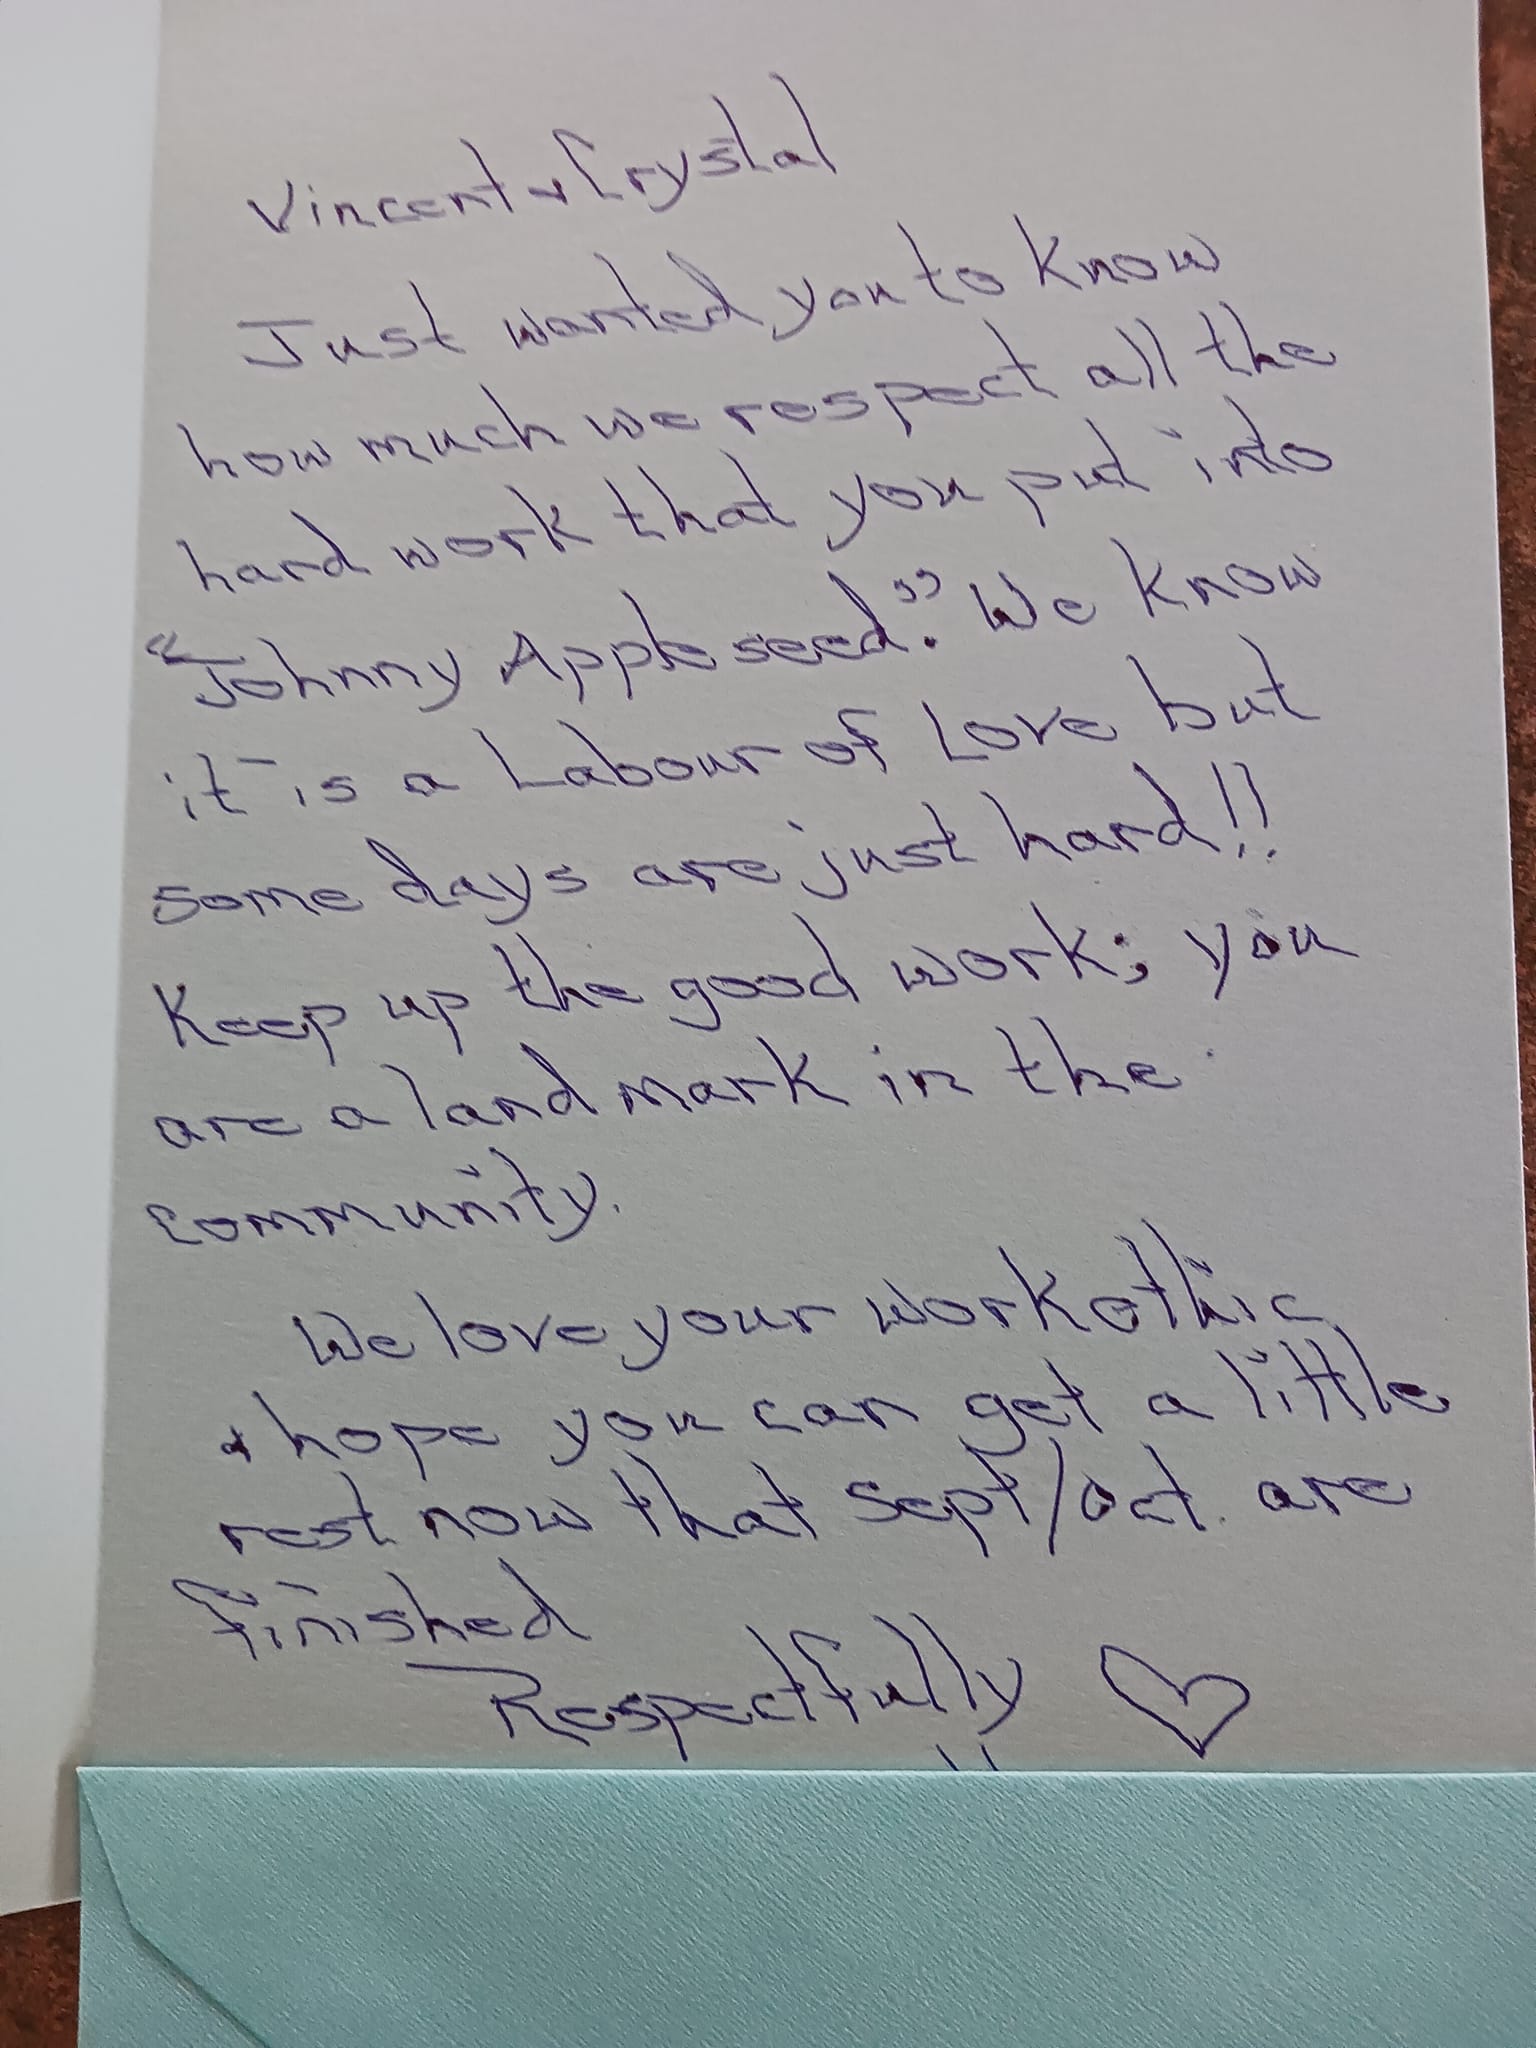 Vincent & Crystal
Just wanted you to know
how much we respect all the
hard work that you put into
"Johnny Appleseed". We know
it is a Labour of Love but
some days are just hard!!
Keep up the good work; you
are a landmark in the
community.
We love your work ethic
& hope you can get a little
rest now that sept/oct. are
finished
Respectfully